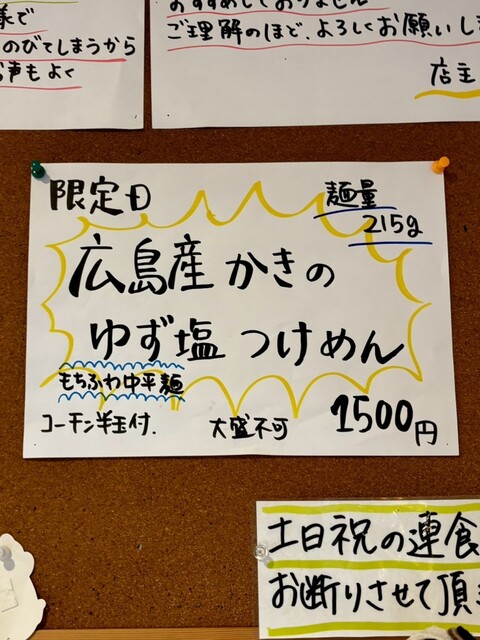 様で
のびてしまうから
お声もよく
おすすめしておりません
ご理解のほど、よろしくお願いしま
店主
限定日
麺量
215g
広島産かきの
ゆず塩つけめん
もちふわ中平麺
コーチン半玉付.
大盛不可
1500円
土日祝の連食
お断りさせて頂き